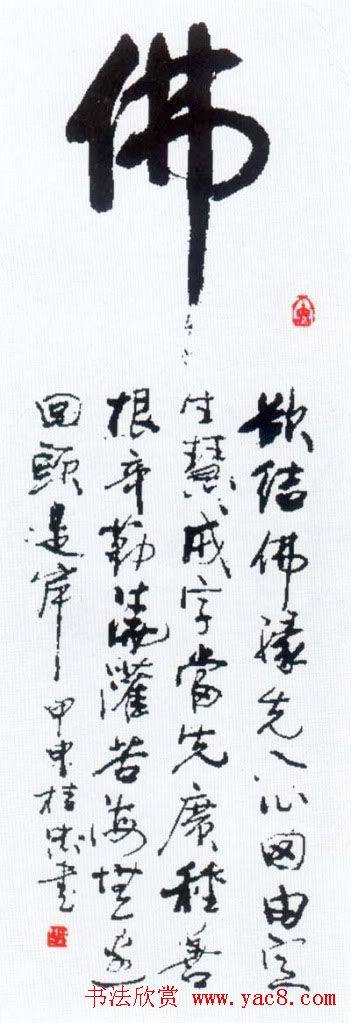 佛
欲结佛缘先入心因由定
生慧戒字当先广種善
根辛勤浇灌苦海無边
回頭是岸甲申桂忠書
书法欣赏 www.yac8.com